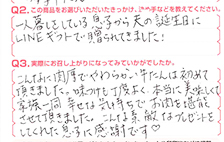 Q2. この商品をお選びいただいたきっかけ、きや手などを教えてください。
一人暮しをしている息子から夫の誕生日に
LINEギフトで贈られてきました!
Q3. 実際にお召し上がりになってみていかがでしたか。
こんなに肉厚でやわらかい牛たんは初めて
頂きました。味つけも丁度よく、本当に美味しくて
家族一同 幸せな気持ちでお肉を堪能
させて頂きました。こんな素敵なプレゼントを
してくれた息子に感謝です♡